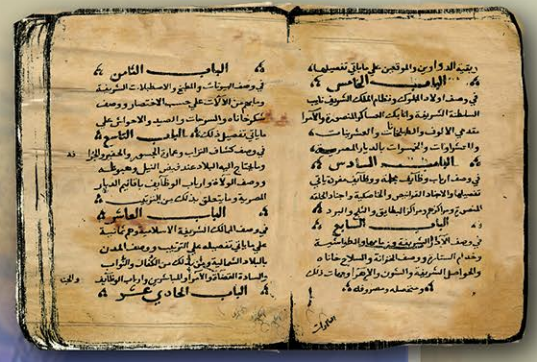 ربقية الدواوين والموقعين على ماياتي تفصيلها
الباب الخامس
في وصف اولاد الملوك ونظام الملك الشريف نايب
السلطنة الشريفة واتابك العساكر المنصورة والامرا
مقدمي الالوف والطبلخانات والعشرينات
والعشراوات والخمسوات بالديار المصرية
الباب السادس
في وصف ارباب وظايف جملة ووظايف مفردة ياتي
تفصيلها والاجناد القرانيص والخاصكية واجناد الحلقة
المنصورة ومراكزهم ومراكز البطايق والثلج والبرد
الباب السابع
في وصف الادر الشريفة وزمامها والطواشية
وخدام الستارة ووصف الخزانة والسلاح خاناه
والحواصل الشريفة والشون والاهرا وجهات ذلك
ومتحصله ومصروفه
الباب الثامن
في وصف البيوتات والمطبخ والاصطبلات الشريفة
وما بهم من الآلات على حسب الاختصار ووصف
شكرخاناه والسرحات والصيد والاحواش على
ماياتي تفصيل ذلك الباب التاسع
في وصف كشاف التراب وعمارة الجسور والحفير والجرا
وما يحتاج اليه البلاد عند قبض النيل وهبوطه
ووصف الولاة وارباب الوظايف باقاليم الديار
المصرية وما يتعلق بذلك من الترتيب
الباب العاشر
في وصف الممالك الشريفة الاسلامية وهم ثمانية
على ماياتي تفصيله على الترتيب ووصف المدن
بالبلاد الشمالية ومن بكل من ذلك من الكفال والنواب
والسادة القضاة والامرا والمباشرين وارباب الوظايف والجند
الباب الحادي عشر